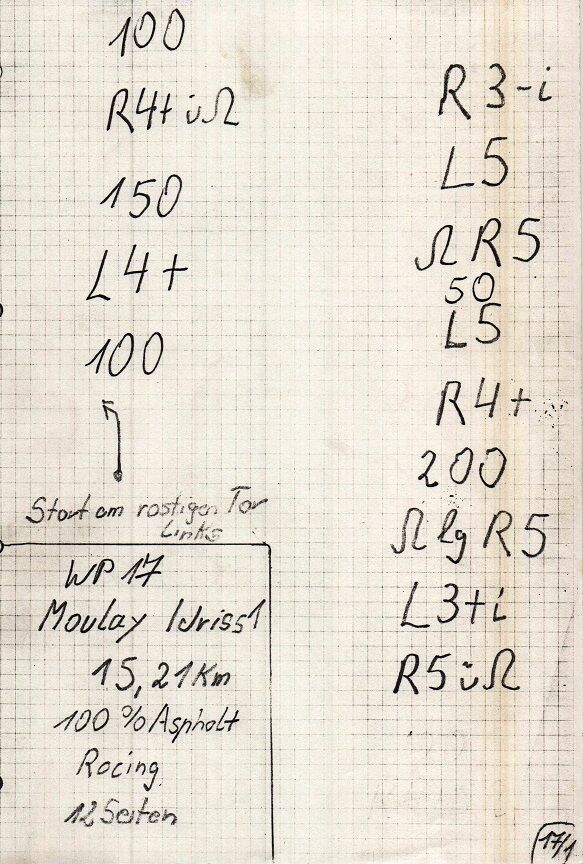 100
R4+ üΩ
150
L4+
100
Start am rostigen Tor
Links
WP 17
Moulay Idriss 1
15,21 Km
100 % Asphalt
Racing
12 Seiten
R 3-i
L5
Ω R5
50
L5
R4+
200
Ω lg R5
L3+i
R5 üΩ
17/1